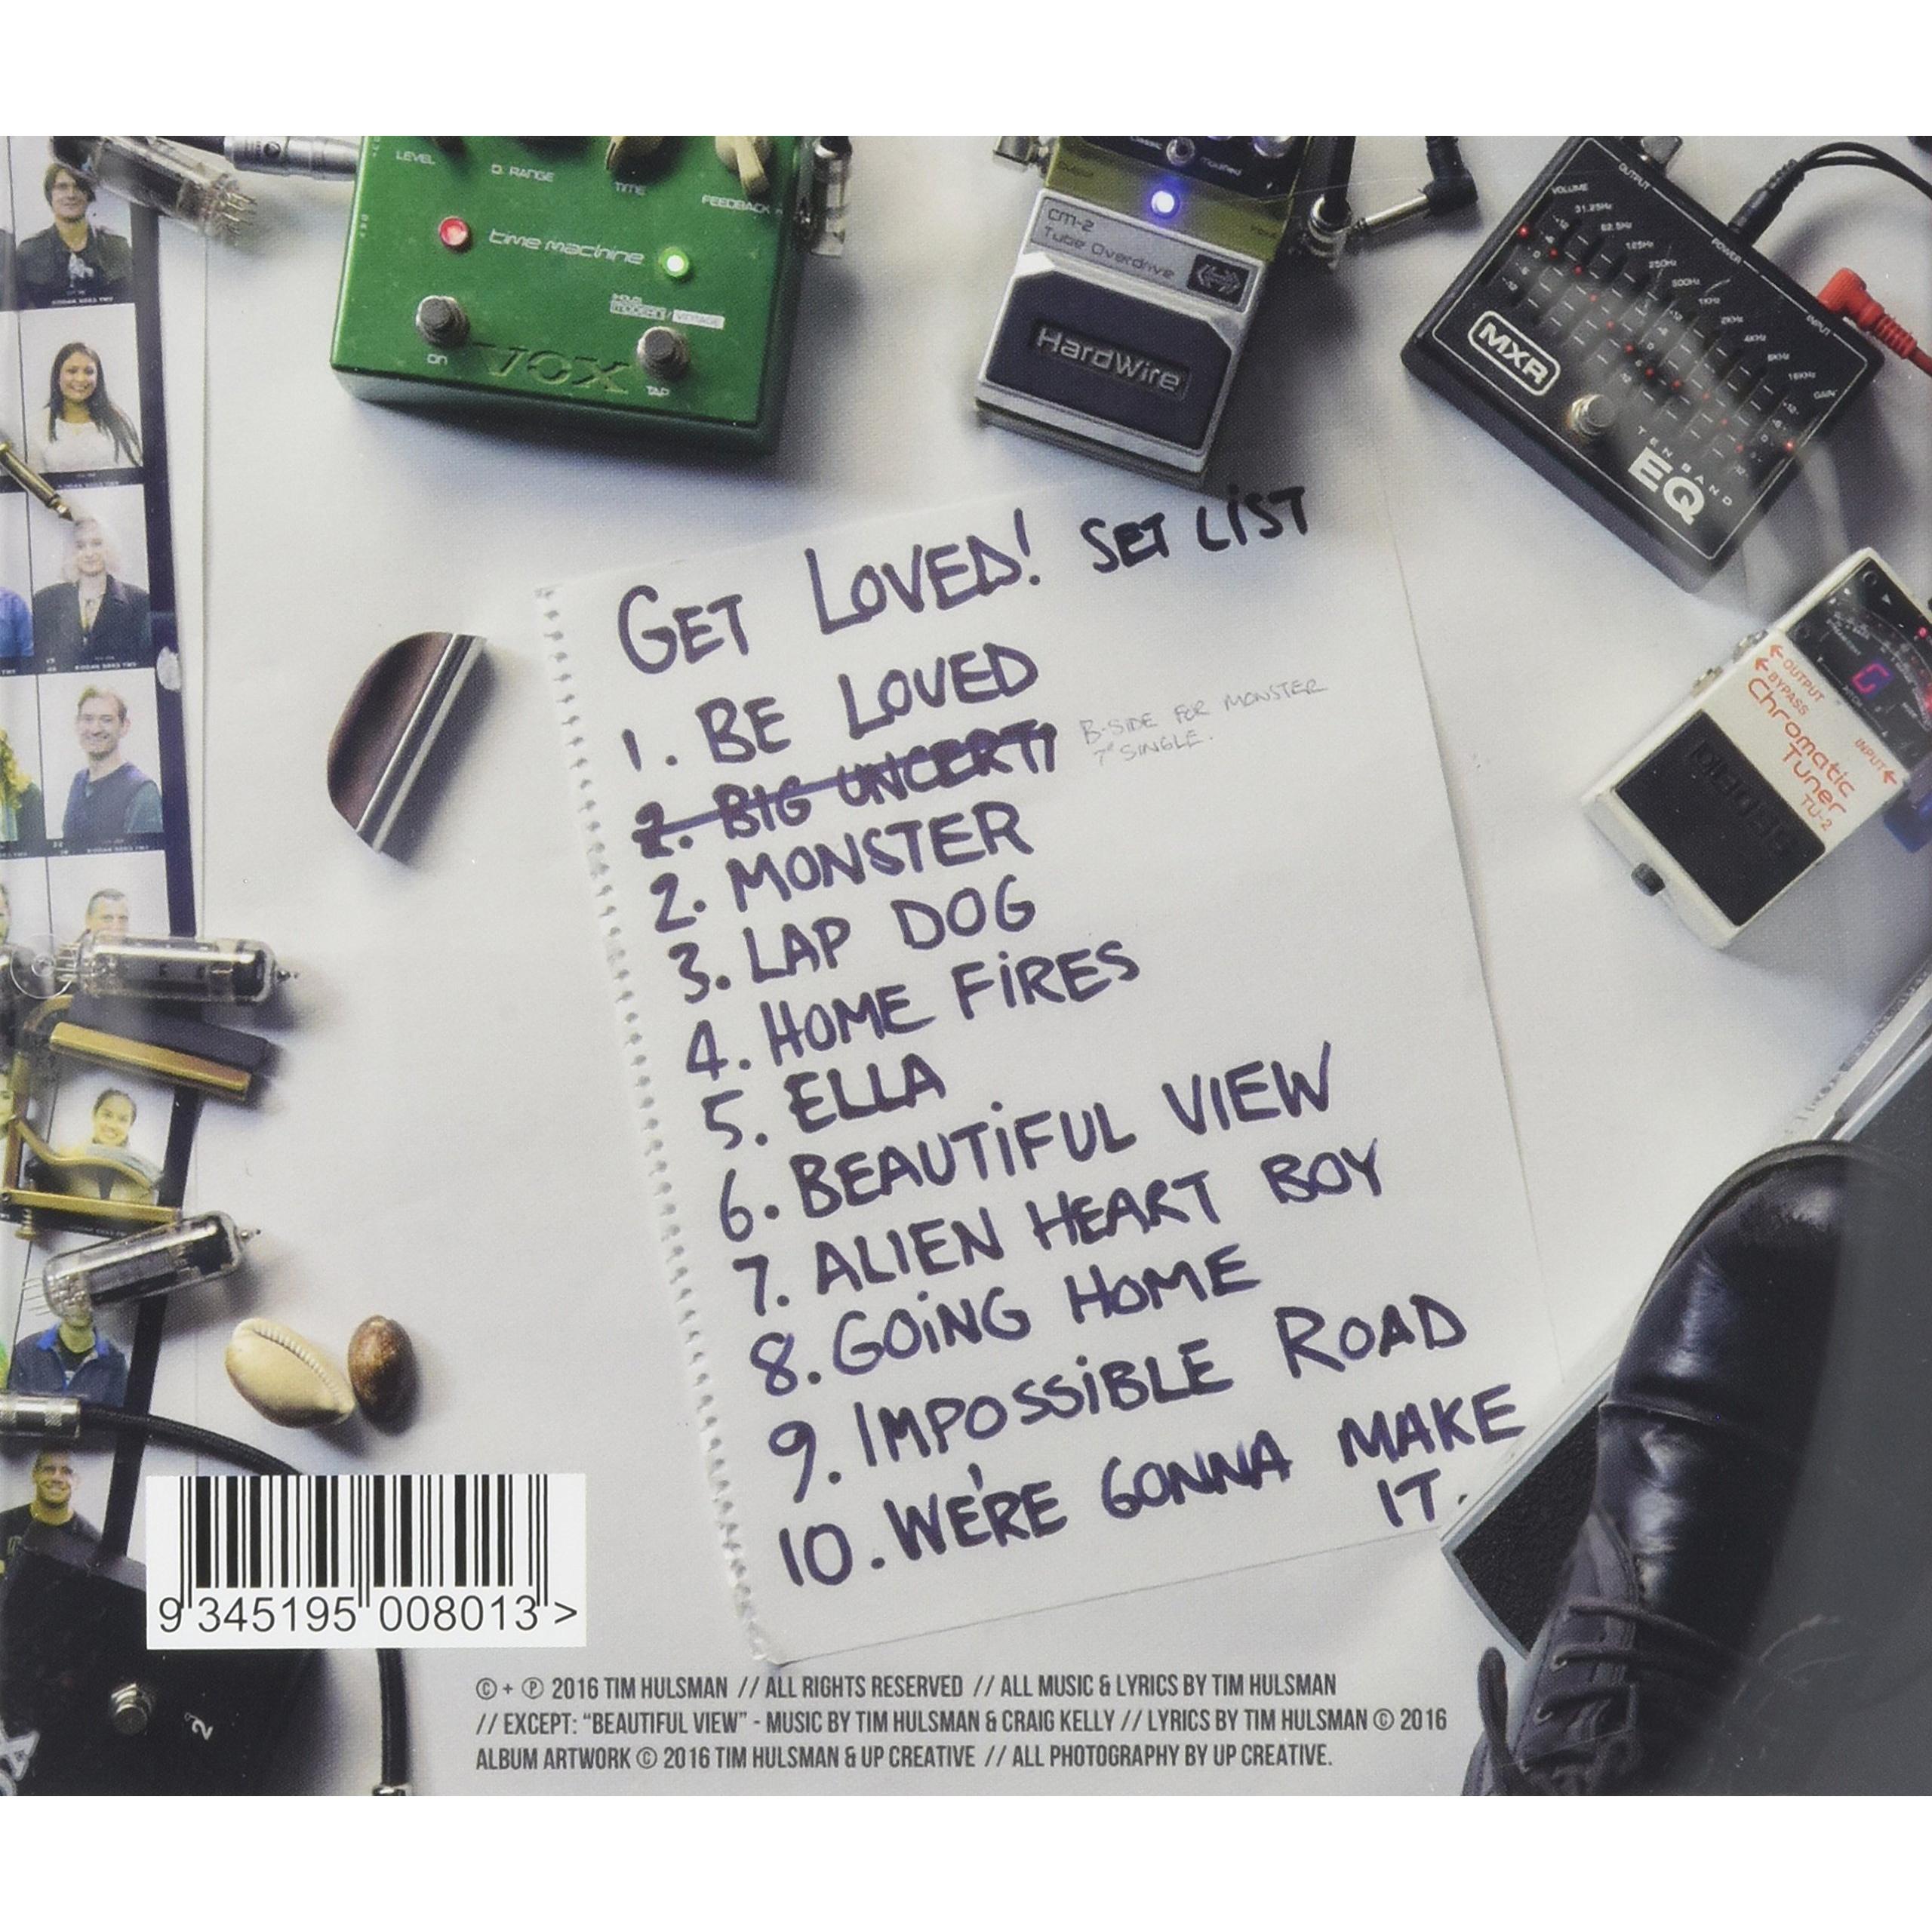 LEVEL
D. RANGE
TIME
FEEDBACK
time machine
MODERN / VINTAGE
ON
VOX
TAP
CM-2
Tube Overdrive
HardWire
OUTPUT
VOLUME
31.25Hz
62.5Hz
125Hz
250Hz
500Hz
1KHz
2KHz
4KHz
8KHz
16KHz
GAIN
POWER
INPUT
MXR
TEN BAND
EQ
OUTPUT
BYPASS
INPUT
Chromatic
Tuner
TU-2
BOSS
GET LOVED! SET LIST
1. BE LOVED
2. BIG UNCERTI B-SIDE FOR MONSTER
7" SINGLE.
2. MONSTER
3. LAP DOG
4. HOME FIRES
5. ELLA
6. BEAUTIFUL VIEW
7. ALIEN HEART BOY
8. GOING HOME
9. IMPOSSIBLE ROAD
10. WE'RE GONNA MAKE
IT.
9 345195 008013 >
2
© + ℗ 2016 TIM HULSMAN // ALL RIGHTS RESERVED // ALL MUSIC & LYRICS BY TIM HULSMAN
// EXCEPT: “BEAUTIFUL VIEW” - MUSIC BY TIM HULSMAN & CRAIG KELLY // LYRICS BY TIM HULSMAN © 2016
ALBUM ARTWORK © 2016 TIM HULSMAN & UP CREATIVE // ALL PHOTOGRAPHY BY UP CREATIVE.